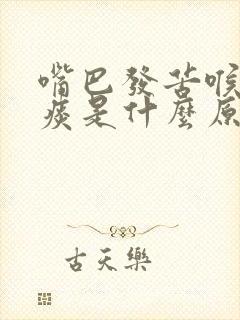 嘴巴發苦喉
痰是什麼原
古天樂